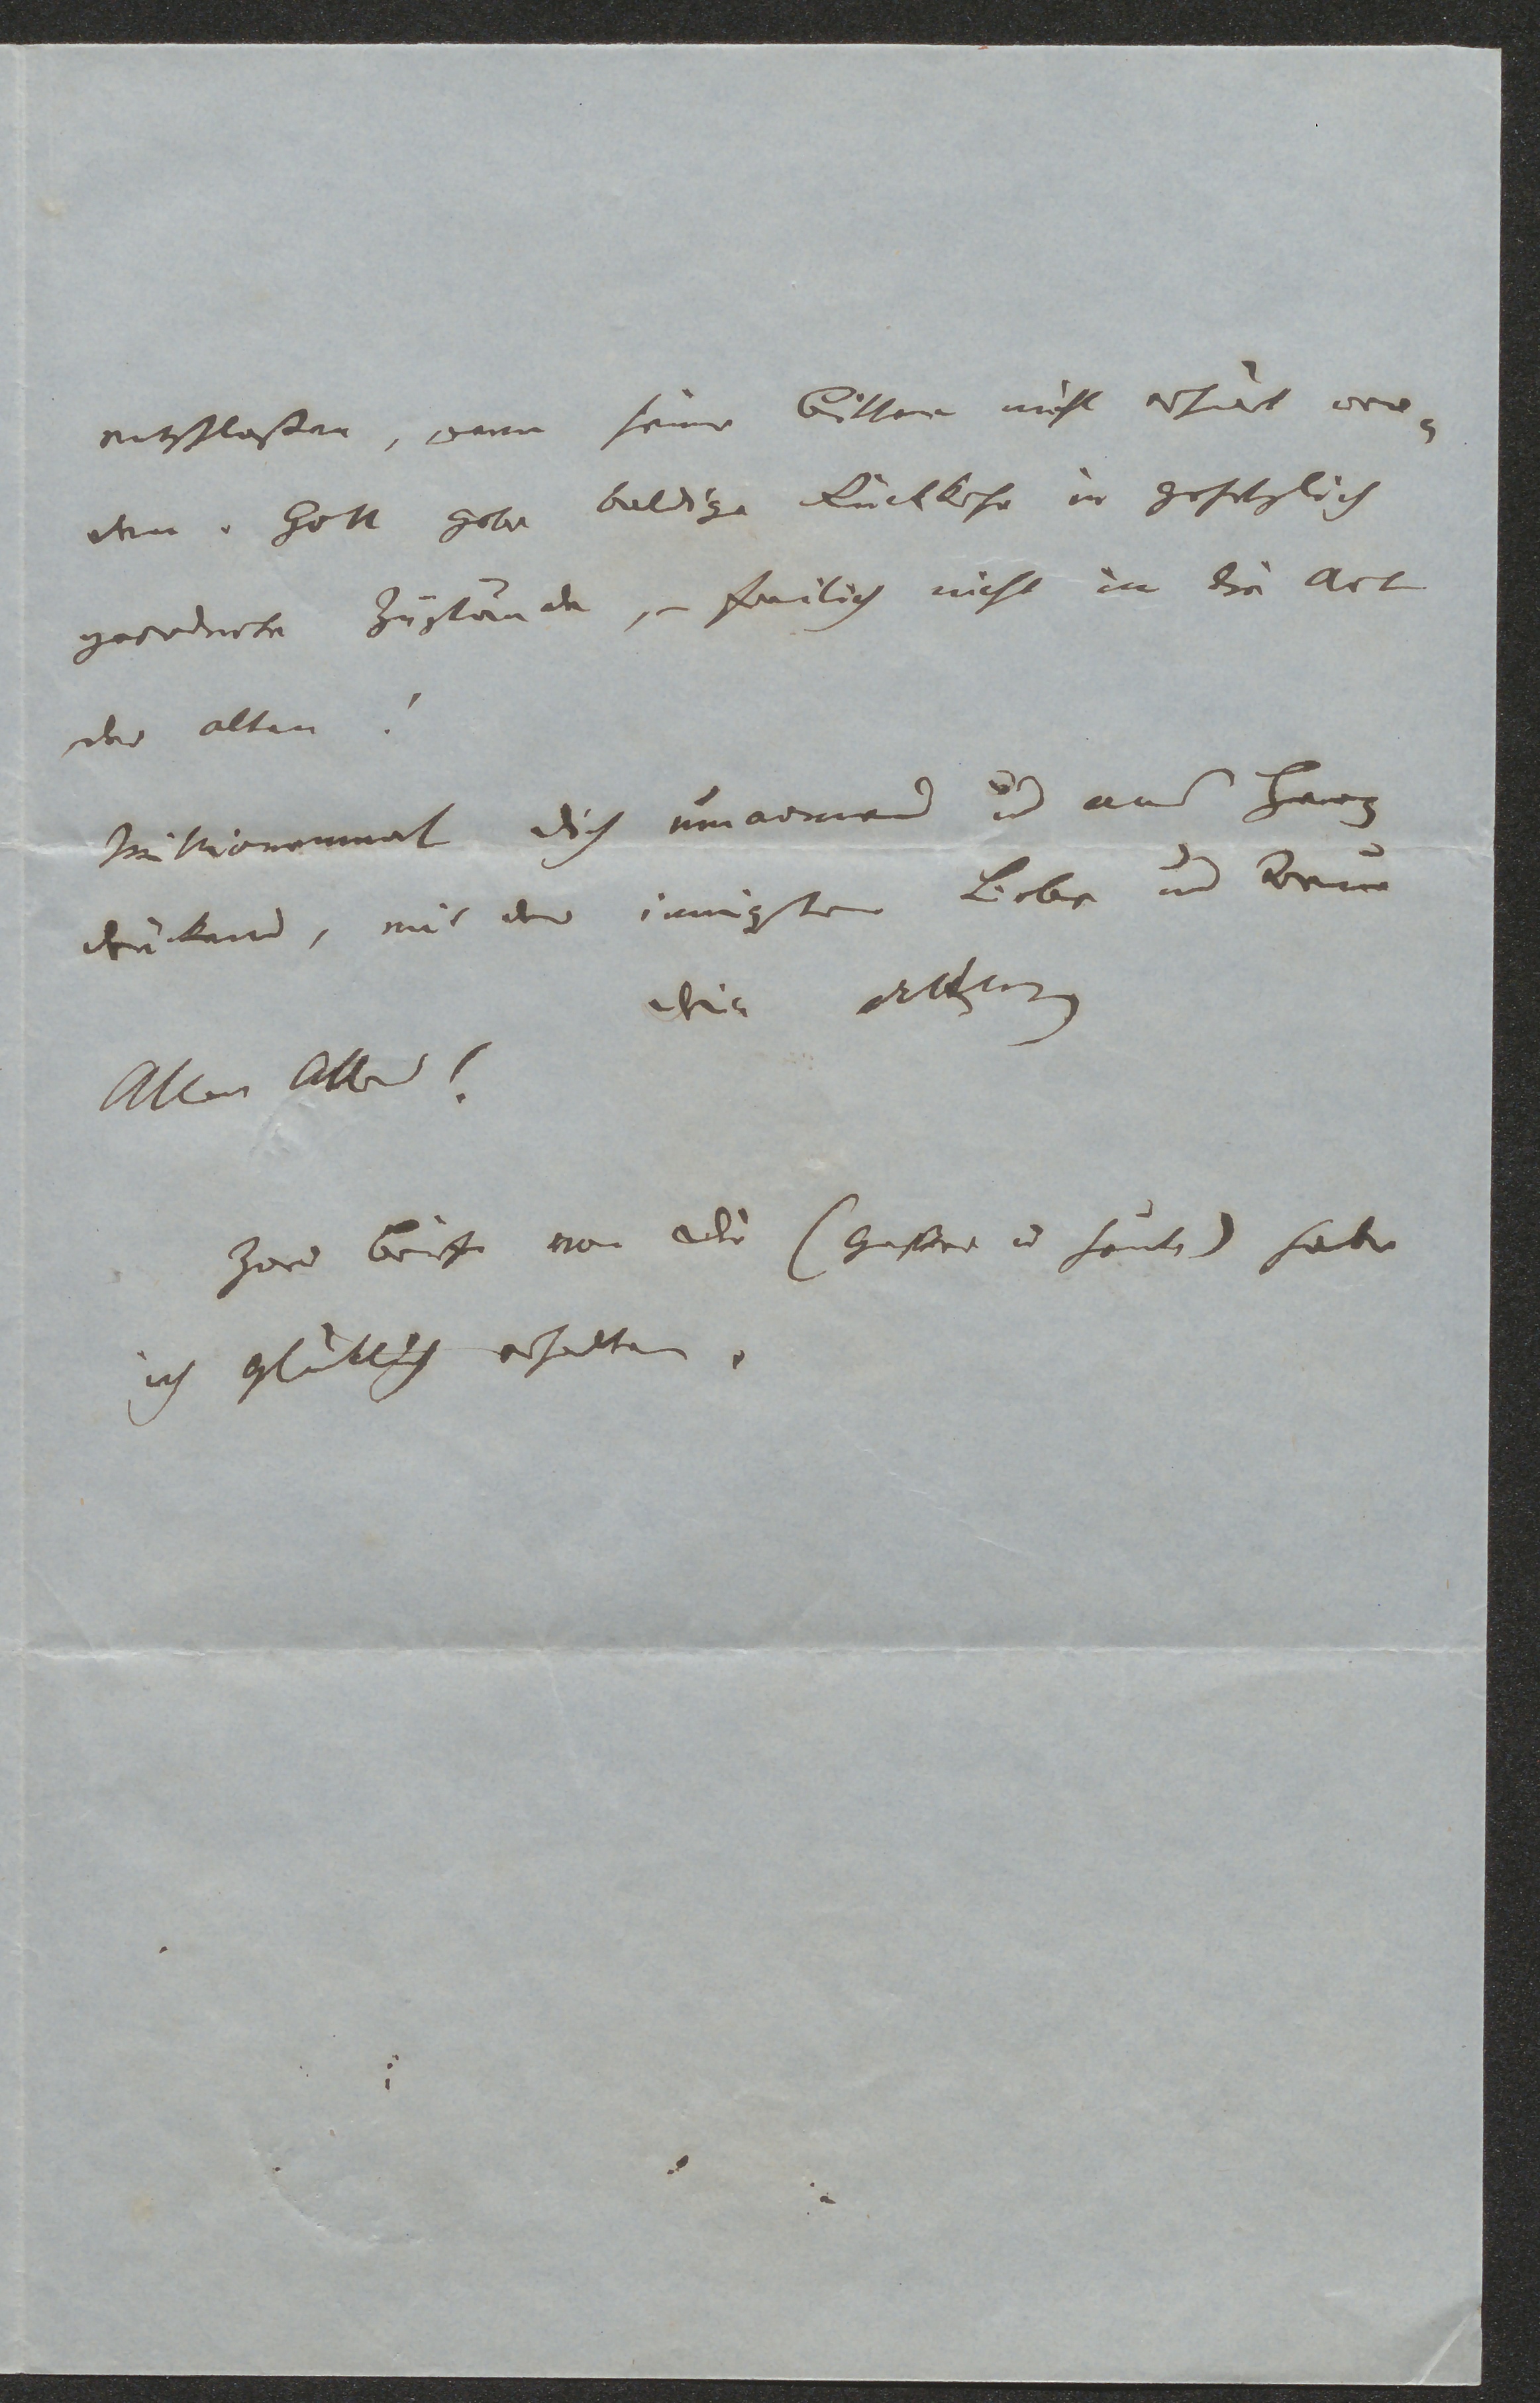 entschlossen, wenn seine Bitten nicht erhört wer-
den. Gott gebe baldige Rückkehr in gesetzlich
geordnete Zustände, – freilich nicht in die Art
der alten!
Millionenmal dich umarmend und ans Herz
drükend, mit der innigsten Liebe und Treue
dein
Allen Alles!
Zwei Briefe von dir (gestern u heute) habe
ich glüklich erhalten.